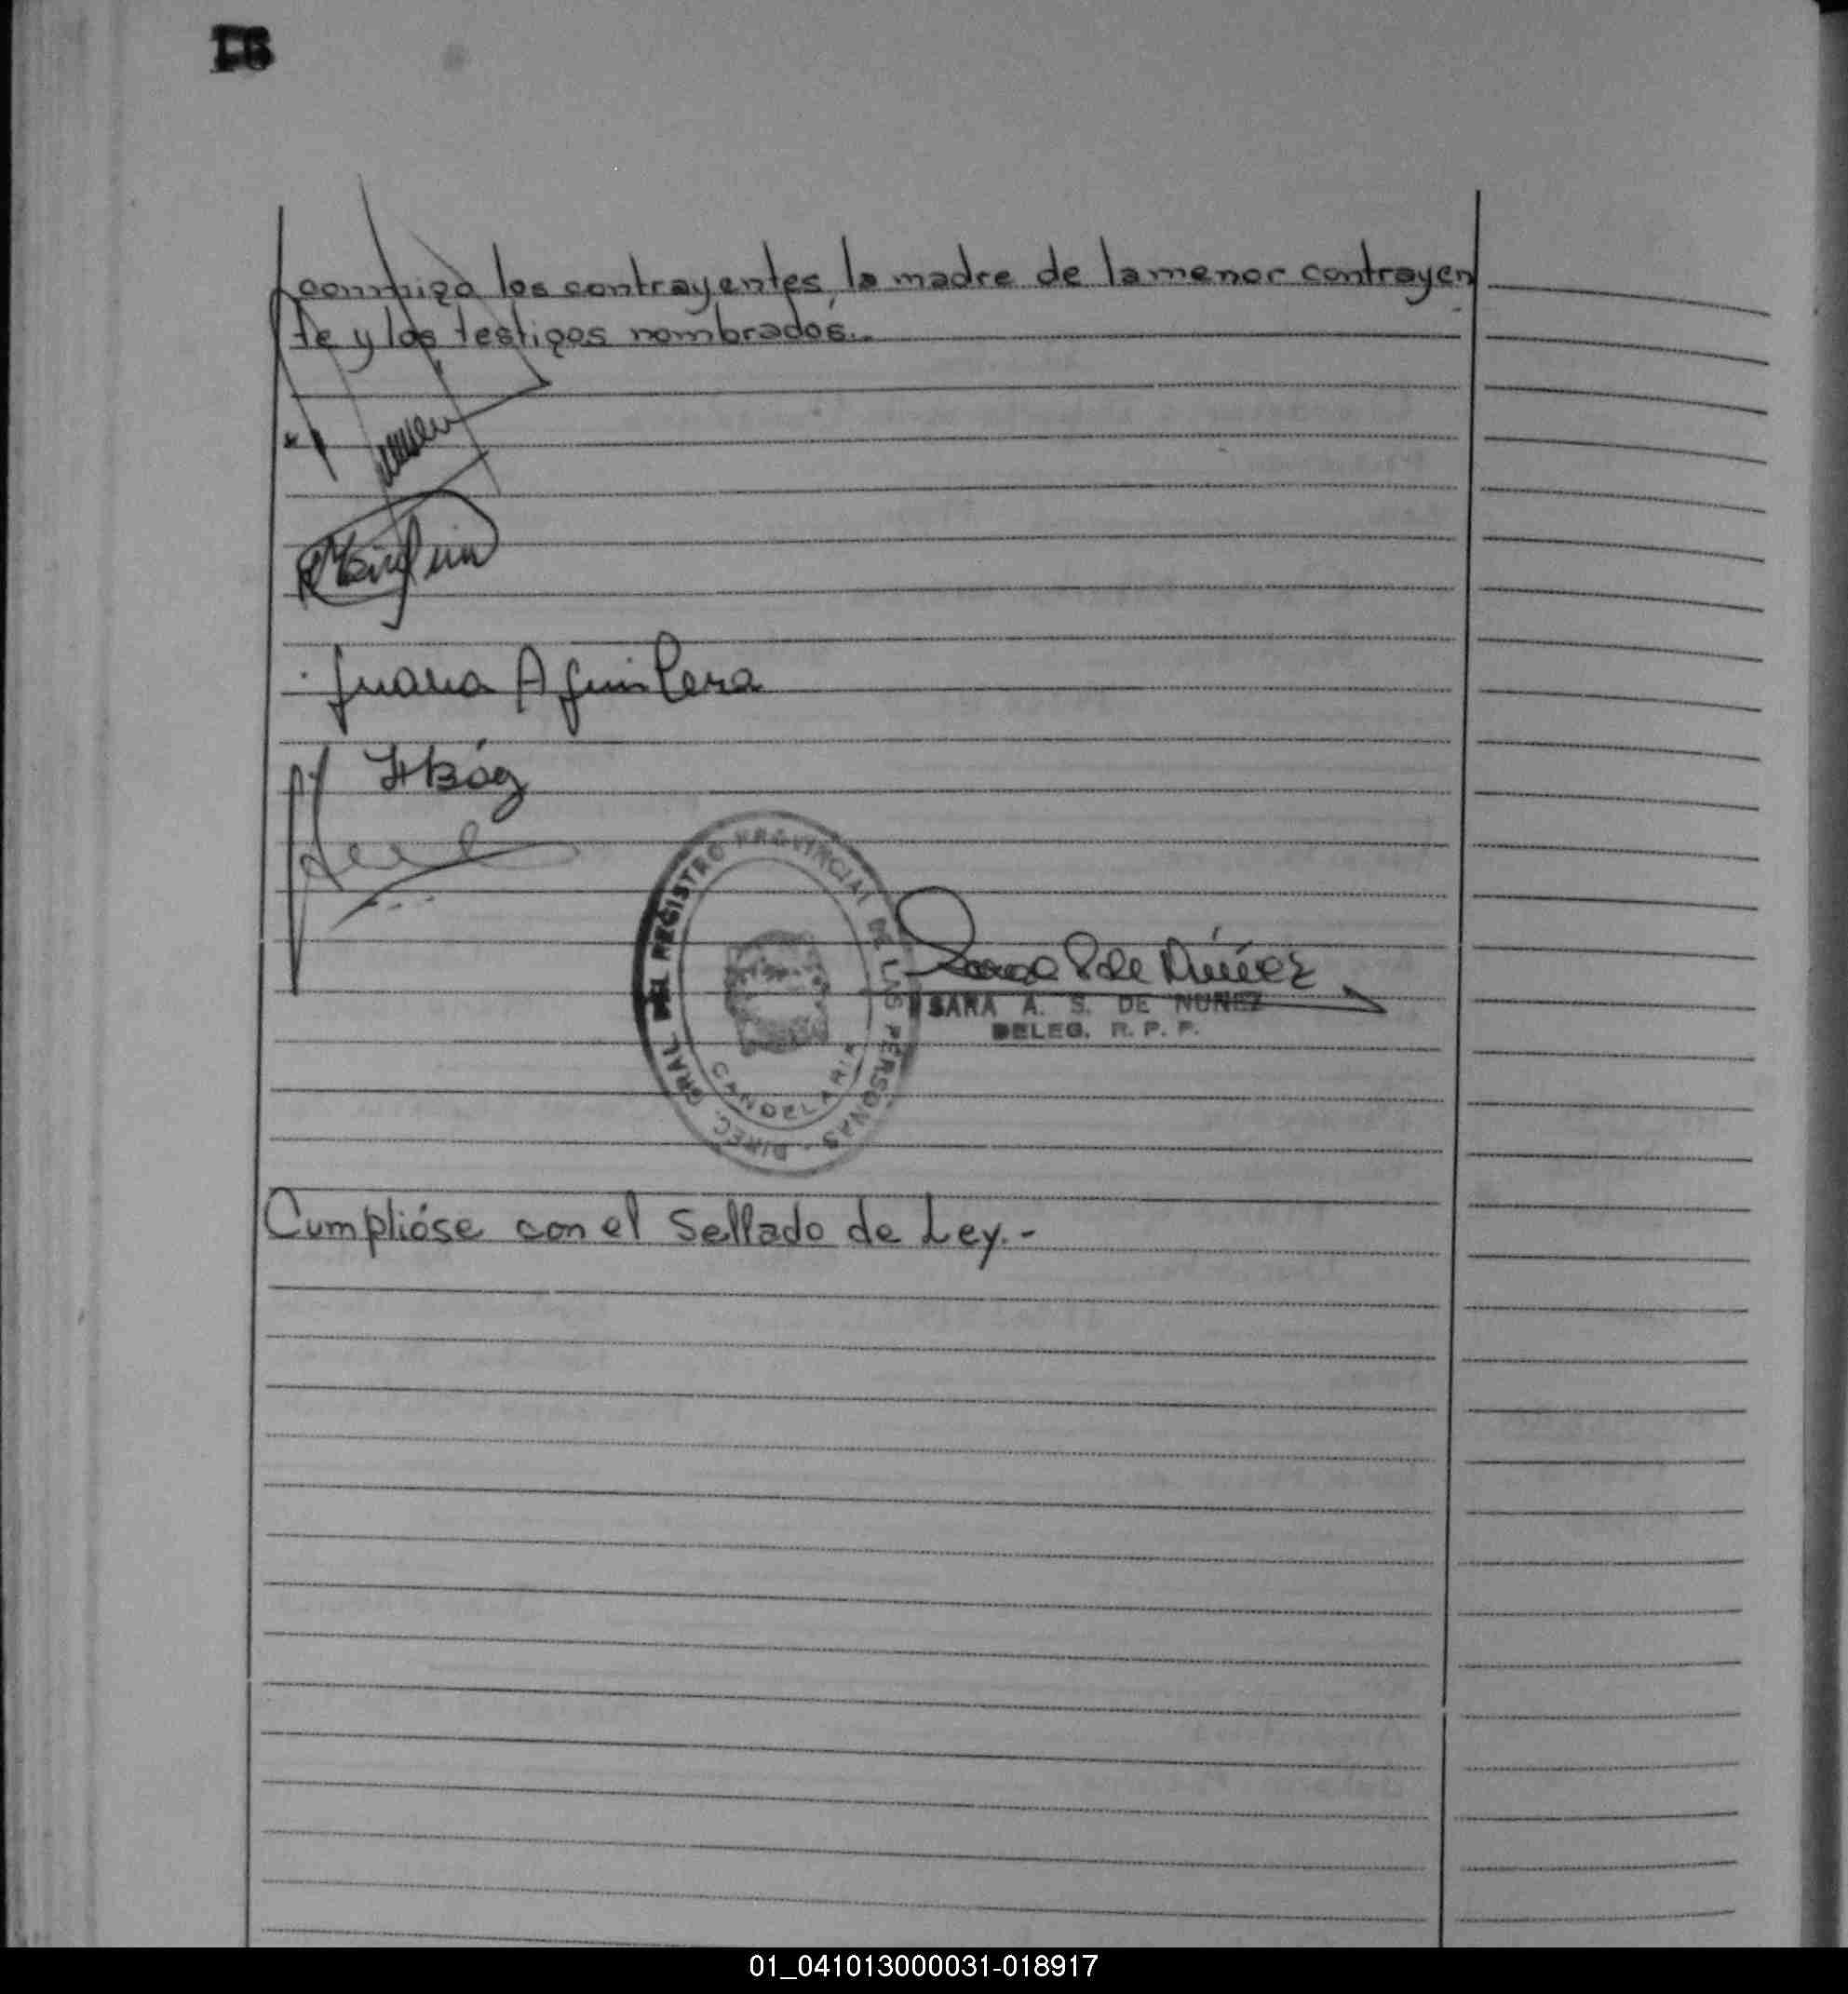 conmigo los contrayentes, la madre de la menor contrayen
te y los testigos nombrados.-
Juana Aguilera
DIREC. GRAL. DEL REGISTRO PROVINCIAL DE LAS PERSONAS
CANDELARIA
Sara S de Núñez
SARA A. S. DE NUÑEZ
DELEG. R. P. P.
Cumplióse con el Sellado de Ley.-
01_041013000031-018917